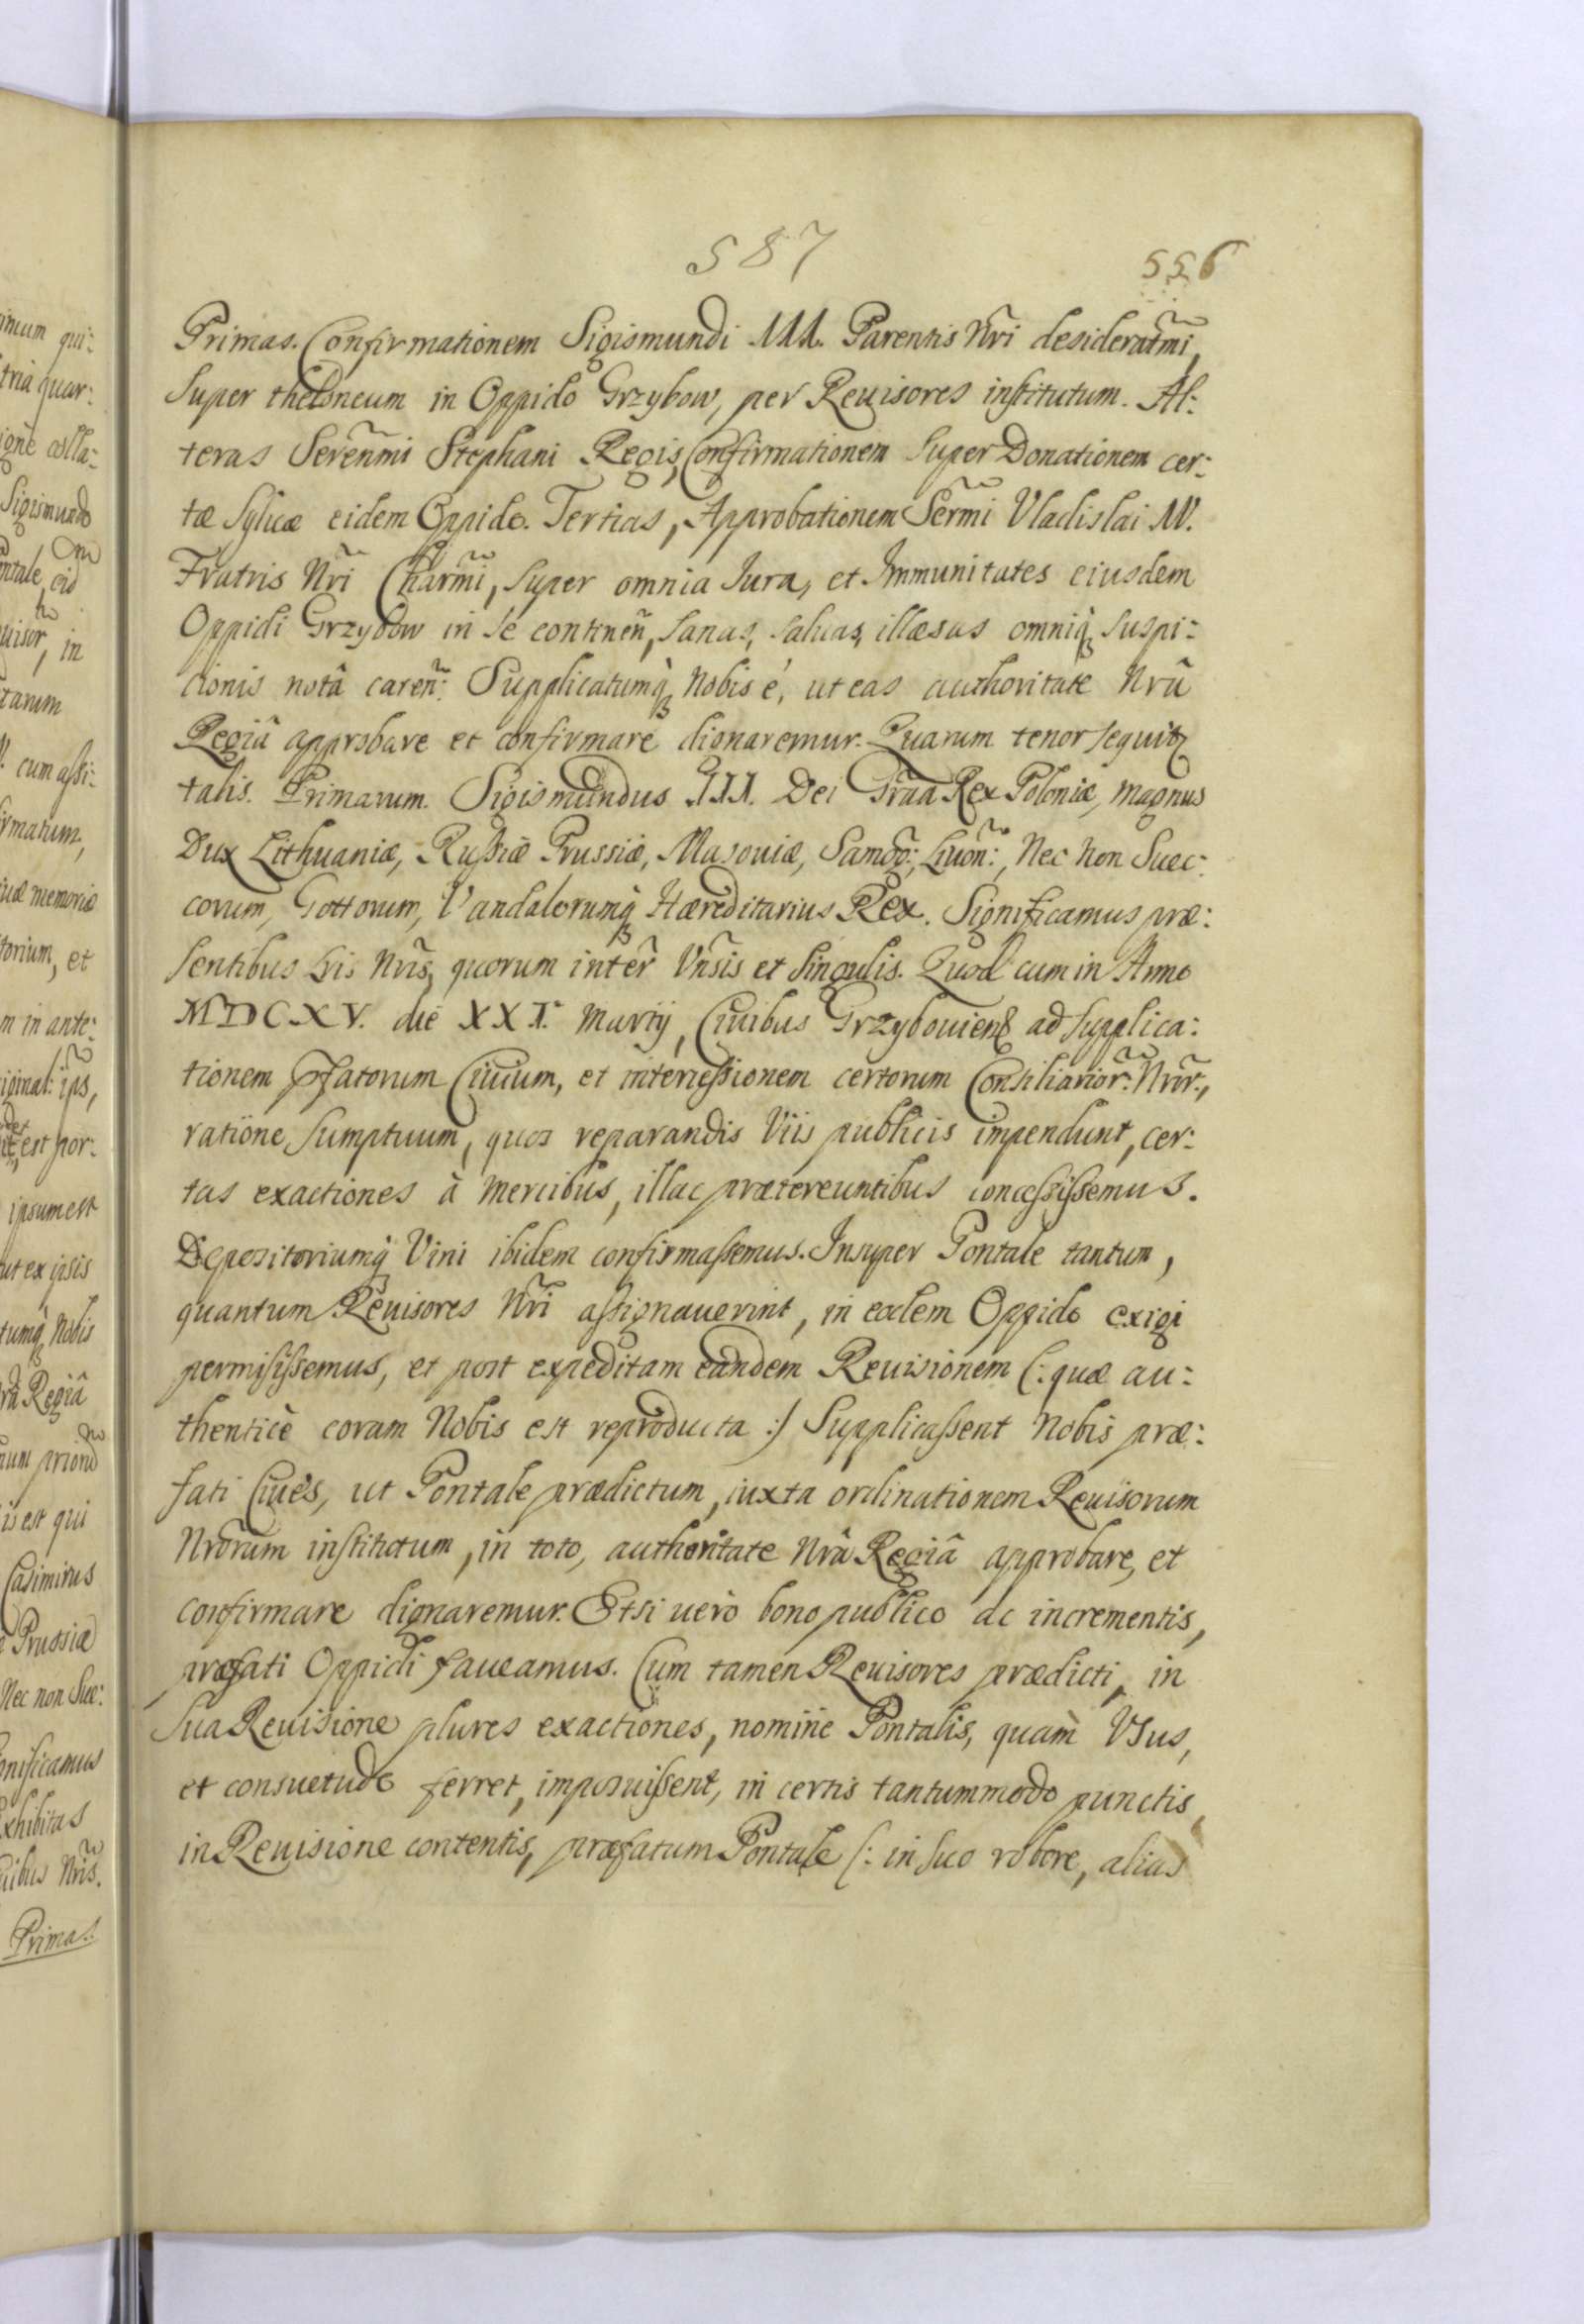 587
556
Primas. Confirmationem Sigismundi III. Parentis Nr̃i desideratm̃i,
Super theloneum in Oppido Grzybow, per Reuisores institutum. Al:
teras Sereñmi Stephani Regis, Confirmationem Super Donationem cer:
tæ Syluæ eidem Oppido. Tertias, Approbationem Ser̃mi Vladislai IV.
Fratris Nr̃i Char̃mi, Super omnia Iura, et Immunitates eiusdem
Oppidi Grzybow in se contineñ, Sanas, Saluas, illæsas omniq̃ Suspi:
cionis notâ careñ: Supplicatumq̃ Nobis é, ut eas authoritate Nrâ
Regiâ approbare et confirmare dignaremur. Quarum tenor sequitr
talis. Primarum. Sigismundus III. Dei Gr̃aa Rex Poloniæ, Magnus
Dux Lithuaniæ, Russiæ Prussiæ, Masouiæ, Samog̃:, Liuoñ:, Nec Non Suec:
corum, Gottorum, Vandalorumq̃ Hæreditarius Rex. Significamus præ:
sentibus Lris Nr̃is, quorum inter̃ Vñsis et Singulis. Quod cum in Anno
MDCXV. die XXI. Martij, Ciuibus Grzybouiens̃ ad Supplica:
tionem pfatorum Ciuium, et intercessionem certorum Consiliarior̃: Nr̃or̃.,
ratione Sumptuum, quos reparandis Viis publicis impendunt, cer:
tas exactiones à Mercibus, illac prætereuntibus concessissemus.
Depositoriumq̃ Vini ibidem confirmassemus. Insuper Pontale tantum,
quantum Reuisores Nr̃i assignauerint, in eodem Oppido exigi
permisissemus, et post expeditam eandem Reuisionem (: quæ au:
thenticè coram Nobis est reproducta :) Supplicassent Nobis præ:
fati Ciues, ut Pontale prædictum, iuxta ordinationem Reuisorum
Nrorum institutum, in toto, authoritate Nrâ Regiâ approbare, et
confirmare dignaremur. Etsi uerò bono publico ac incrementis,
præfati Oppidi faueamus. Cum tamen Reuisores prædicti, in
Sua Reuisione plures exactiones, nomine Pontalis, quàm Vsus,
et consuetudo ferret, imposuissent, in certis tantummodo punctis,
in Reuisione contentis, præfatum Pontale (: in Suo robore, alias